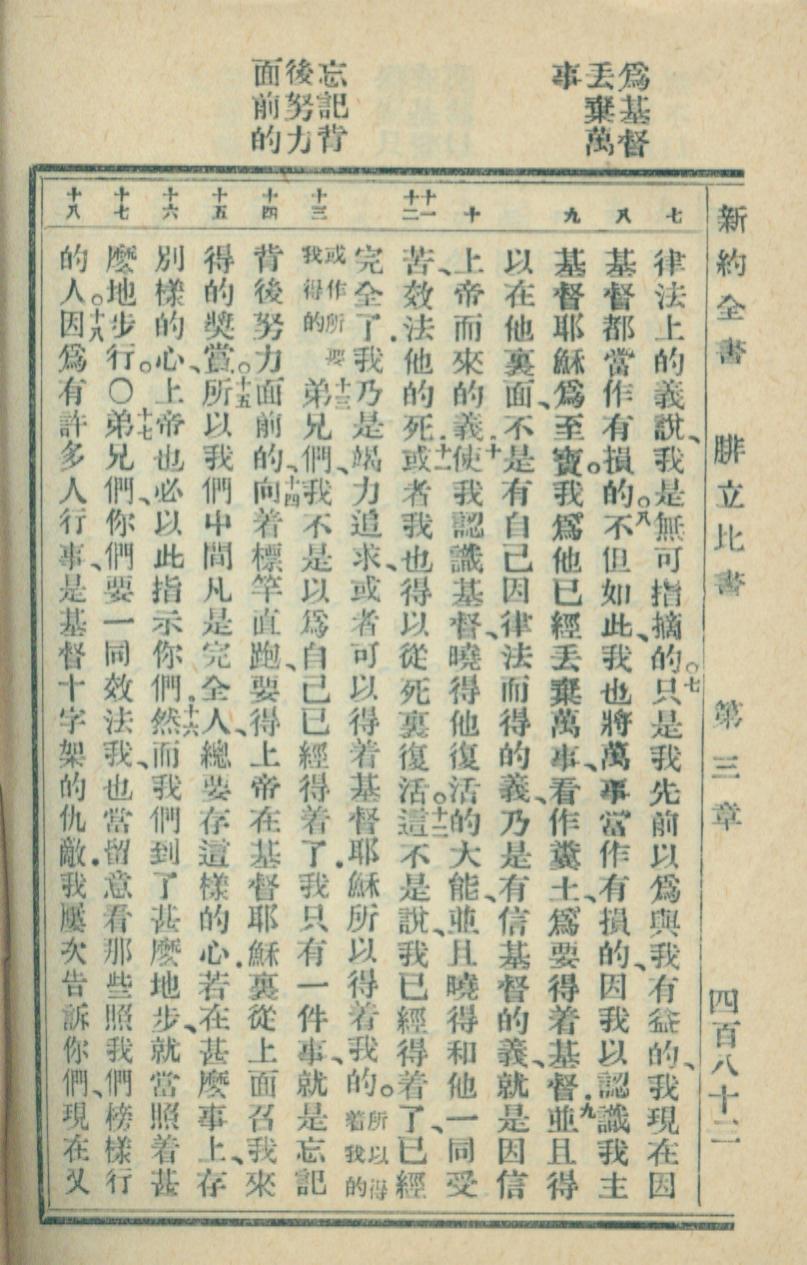 新約全書 腓立比書 第三章 四百八十二
爲基督
丟棄萬
事
忘記背
後努力
面前的
七
八
九
十
十一
十二
十三
十四
十五
十六
十七
十八
律法上的義說、我是無可指摘的。七只是我先前以爲與我有益的、我現在因
基督都當作有損的。八不但如此、我也將萬事當作有損的、因我以認識我主
基督耶穌爲至寶。我爲他已經丟棄萬事、看作糞土、爲要得着基督.九並且得
以在他裏面、不是有自己因律法而得的義、乃是有信基督的義、就是因信
上帝而來的義.十使我認識基督、曉得他復活的大能、並且曉得和他一同受
苦、效法他的死.十一或者我也得以從死裏復活。十二這不是說、我已經得着了、已經
完全了.我乃是竭力追求、或者可以得着基督耶穌所以得着我的。所以得着我的
或作所要我得的十三弟兄們、我不是以爲自己已經得着了.我只有一件事、就是忘記
背後努力面前的、十四向着標竿直跑、要得上帝在基督耶穌裏從上面召我來
得的獎賞。十五所以我們中間凡是完全人、總要存這樣的心.若在甚麼事上、存
別樣的心、上帝也必以此指示你們.十六然而我們到了甚麼地步、就當照着甚
麼地步行。〇十七弟兄們、你們要一同效法我、也當留意看那些照我們榜樣行
的人。十八因爲有許多人行事、是基督十字架的仇敵.我屢次告訴你們、現在又